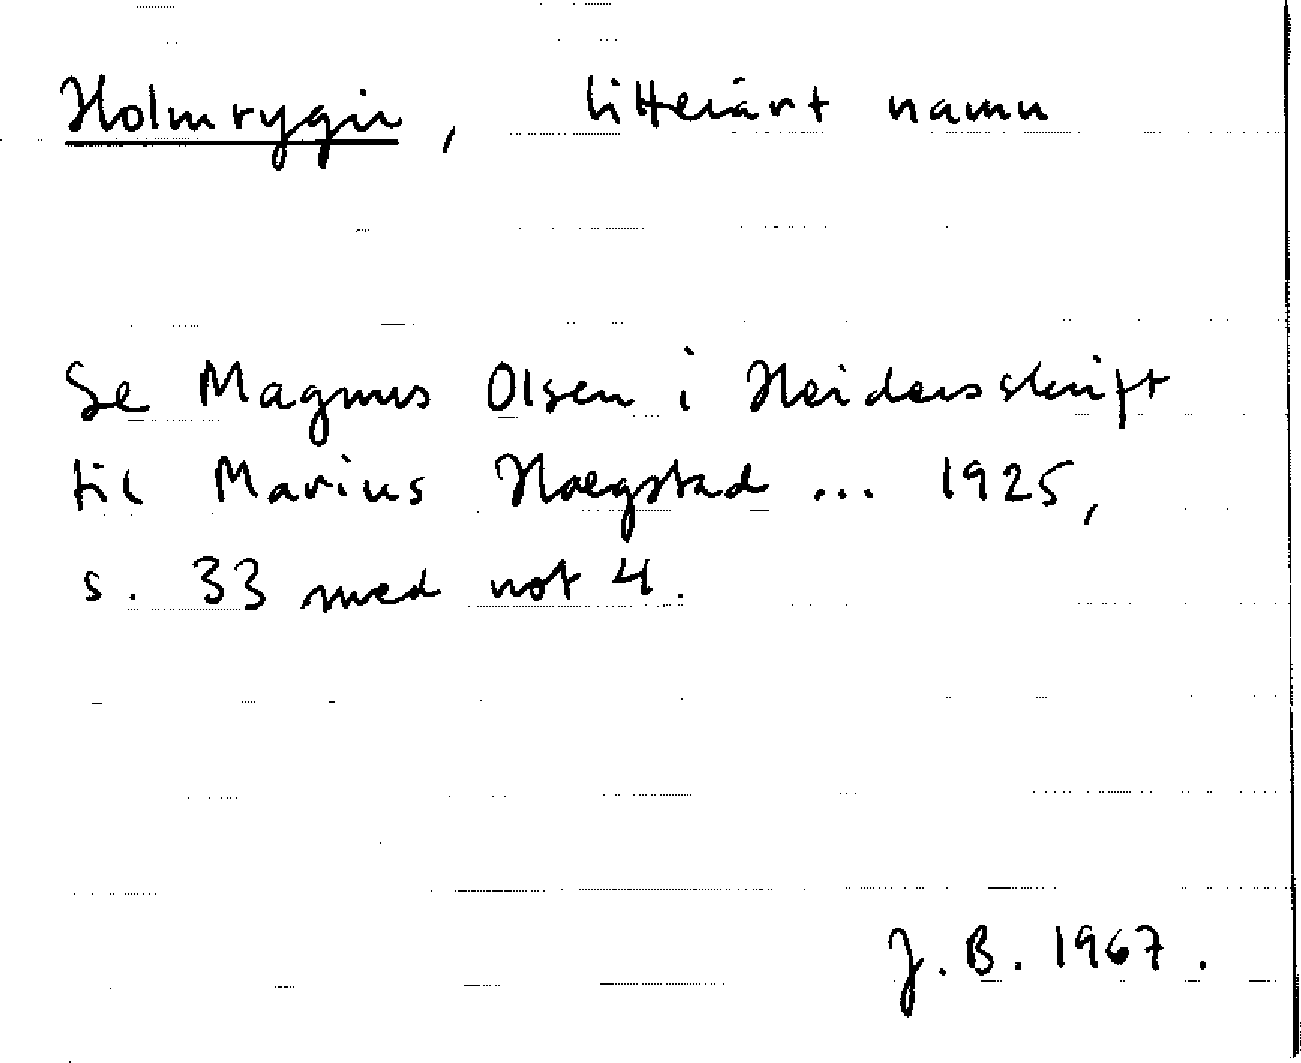 Holmrygir, litterärt namn
Se Magnus Olsen i Heidersskrift
til Marius Hægstad ... 1925,
s. 33 med not 4.
J. B. 1967.